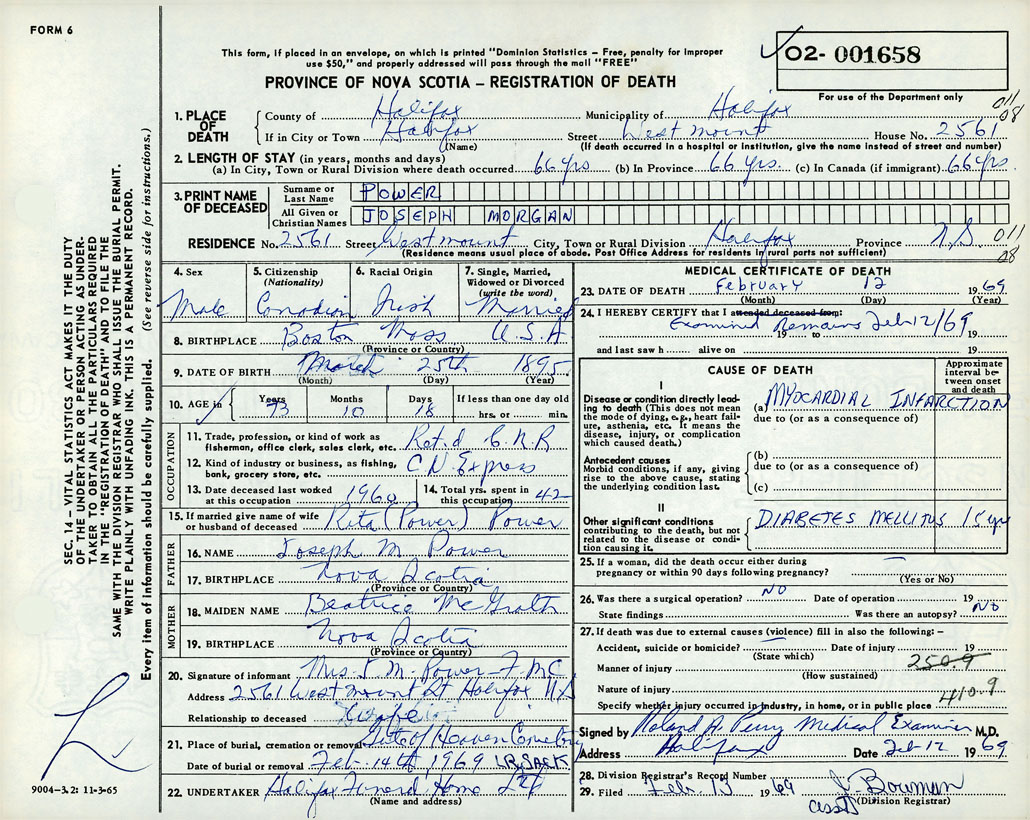 FORM 6
This form, if placed in an envelope, on which is printed "Dominion Statistics – Free, penalty for improper
use $50," and properly addressed will pass through the mail "FREE"
PROVINCE OF NOVA SCOTIA – REGISTRATION OF DEATH
02- 001658
For use of the Department only
1. PLACE OF DEATH
County of Halifax Municipality of Halifax 011
If in City or Town Halifax Street Westmount House No. 2561 08
(Name) (If death occurred in a hospital or institution, give the name instead of street and number)
2. LENGTH OF STAY (in years, months and days)
(a) In City, Town or Rural Division where death occurred 66 yrs (b) In Province 66 yrs. (c) In Canada (if immigrant) 66 yrs
3. PRINT NAME OF DECEASED
Surname or Last Name POWER
All Given or Christian Names JOSEPH MORGAN
RESIDENCE No. 2561 Street Westmount City, Town or Rural Division Halifax Province N S 011
(Residence means usual place of abode. Post Office Address for residents in rural parts not sufficient) 08
4. Sex
Male
5. Citizenship
(Nationality)
Canadian
6. Racial Origin
Irish
7. Single, Married,
Widowed or Divorced
(write the word)
Married
8. BIRTHPLACE Boston Mass U.S.A
(Province or Country)
9. DATE OF BIRTH March 25th 1895
(Month) (Day) (Year)
10. AGE in Years 73 Months 10 Days 18 If less than one day old
hrs. or min.
OCCUPATION
11. Trade, profession, or kind of work as
fisherman, office clerk, sales clerk, etc. Ret.d C.N.R
12. Kind of industry or business, as fishing,
bank, grocery store, etc. C N Express
13. Date deceased last worked
at this occupation 1960
14. Total yrs. spent in
this occupation 42
15. If married give name of wife
or husband of deceased Rita (Power) Power
FATHER
16. NAME Joseph M Power
17. BIRTHPLACE Nova Scotia
(Province or Country)
MOTHER
18. MAIDEN NAME Beatrice McGrath
19. BIRTHPLACE Nova Scotia
(Province or Country)
20. Signature of informant Mrs J M. Power
Address 2561 Westmount St Halifax N S
Relationship to deceased Wife
21. Place of burial, cremation or removal Gate of Heaven Cemetery
Date of burial or removal Feb. 14th 1969 LR.SACK
22. UNDERTAKER Halifax Funeral Home Ltd
(Name and address)
MEDICAL CERTIFICATE OF DEATH
23. DATE OF DEATH February 12 1969
(Month) (Day) (Year)
24. I HEREBY CERTIFY that I attended deceased from:
Examined Remains Feb 12/69
19 to 19
and last saw h alive on 19
CAUSE OF DEATH
Approximate interval between onset and death
I
Disease or condition directly lead-
ing to death (This does not mean
the mode of dying, e.g., heart fail-
ure, asthenia, etc. It means the
disease, injury, or complication
which caused death.)
(a) MYOCARDIAL INFARCTION
due to (or as a consequence of)
Antecedent causes
Morbid conditions, if any, giving
rise to the above cause, stating
the underlying condition last.
(b)
due to (or as a consequence of)
(c)
II
Other significant conditions
contributing to the death, but not
related to the disease or condi-
tion causing it.
DIABETES MELLITUS 15 yr
25. If a woman, did the death occur either during
pregnancy or within 90 days following pregnancy? —
(Yes or No)
26. Was there a surgical operation? NO Date of operation 19
State findings Was there an autopsy? NO
27. If death was due to external causes (violence) fill in also the following: –
Accident, suicide or homicide? — Date of injury 19
(State which)
Manner of injury 250.9
(How sustained)
Nature of injury 410.9
Specify whether injury occurred in industry, in home, or in public place
Signed by Roland A. Perry Medical Examiner M.D.
Address Halifax Date Feb-12 1969
28. Division Registrar's Record Number
29. Filed Feb. 13 1969 J. Bowman
asst (Division Registrar)
SEC. 14 – VITAL STATISTICS ACT MAKES IT THE DUTY
OF THE UNDERTAKER OR PERSON ACTING AS UNDER-
TAKER TO OBTAIN ALL THE PARTICULARS REQUIRED
IN THE "REGISTRATION OF DEATH" AND TO FILE THE
SAME WITH THE DIVISION REGISTRAR WHO SHALL ISSUE THE BURIAL PERMIT.
WRITE PLAINLY WITH UNFADING INK. THIS IS A PERMANENT RECORD.
Every item of information should be carefully supplied. (See reverse side for instructions.)
9004–3.2: 11-3-65